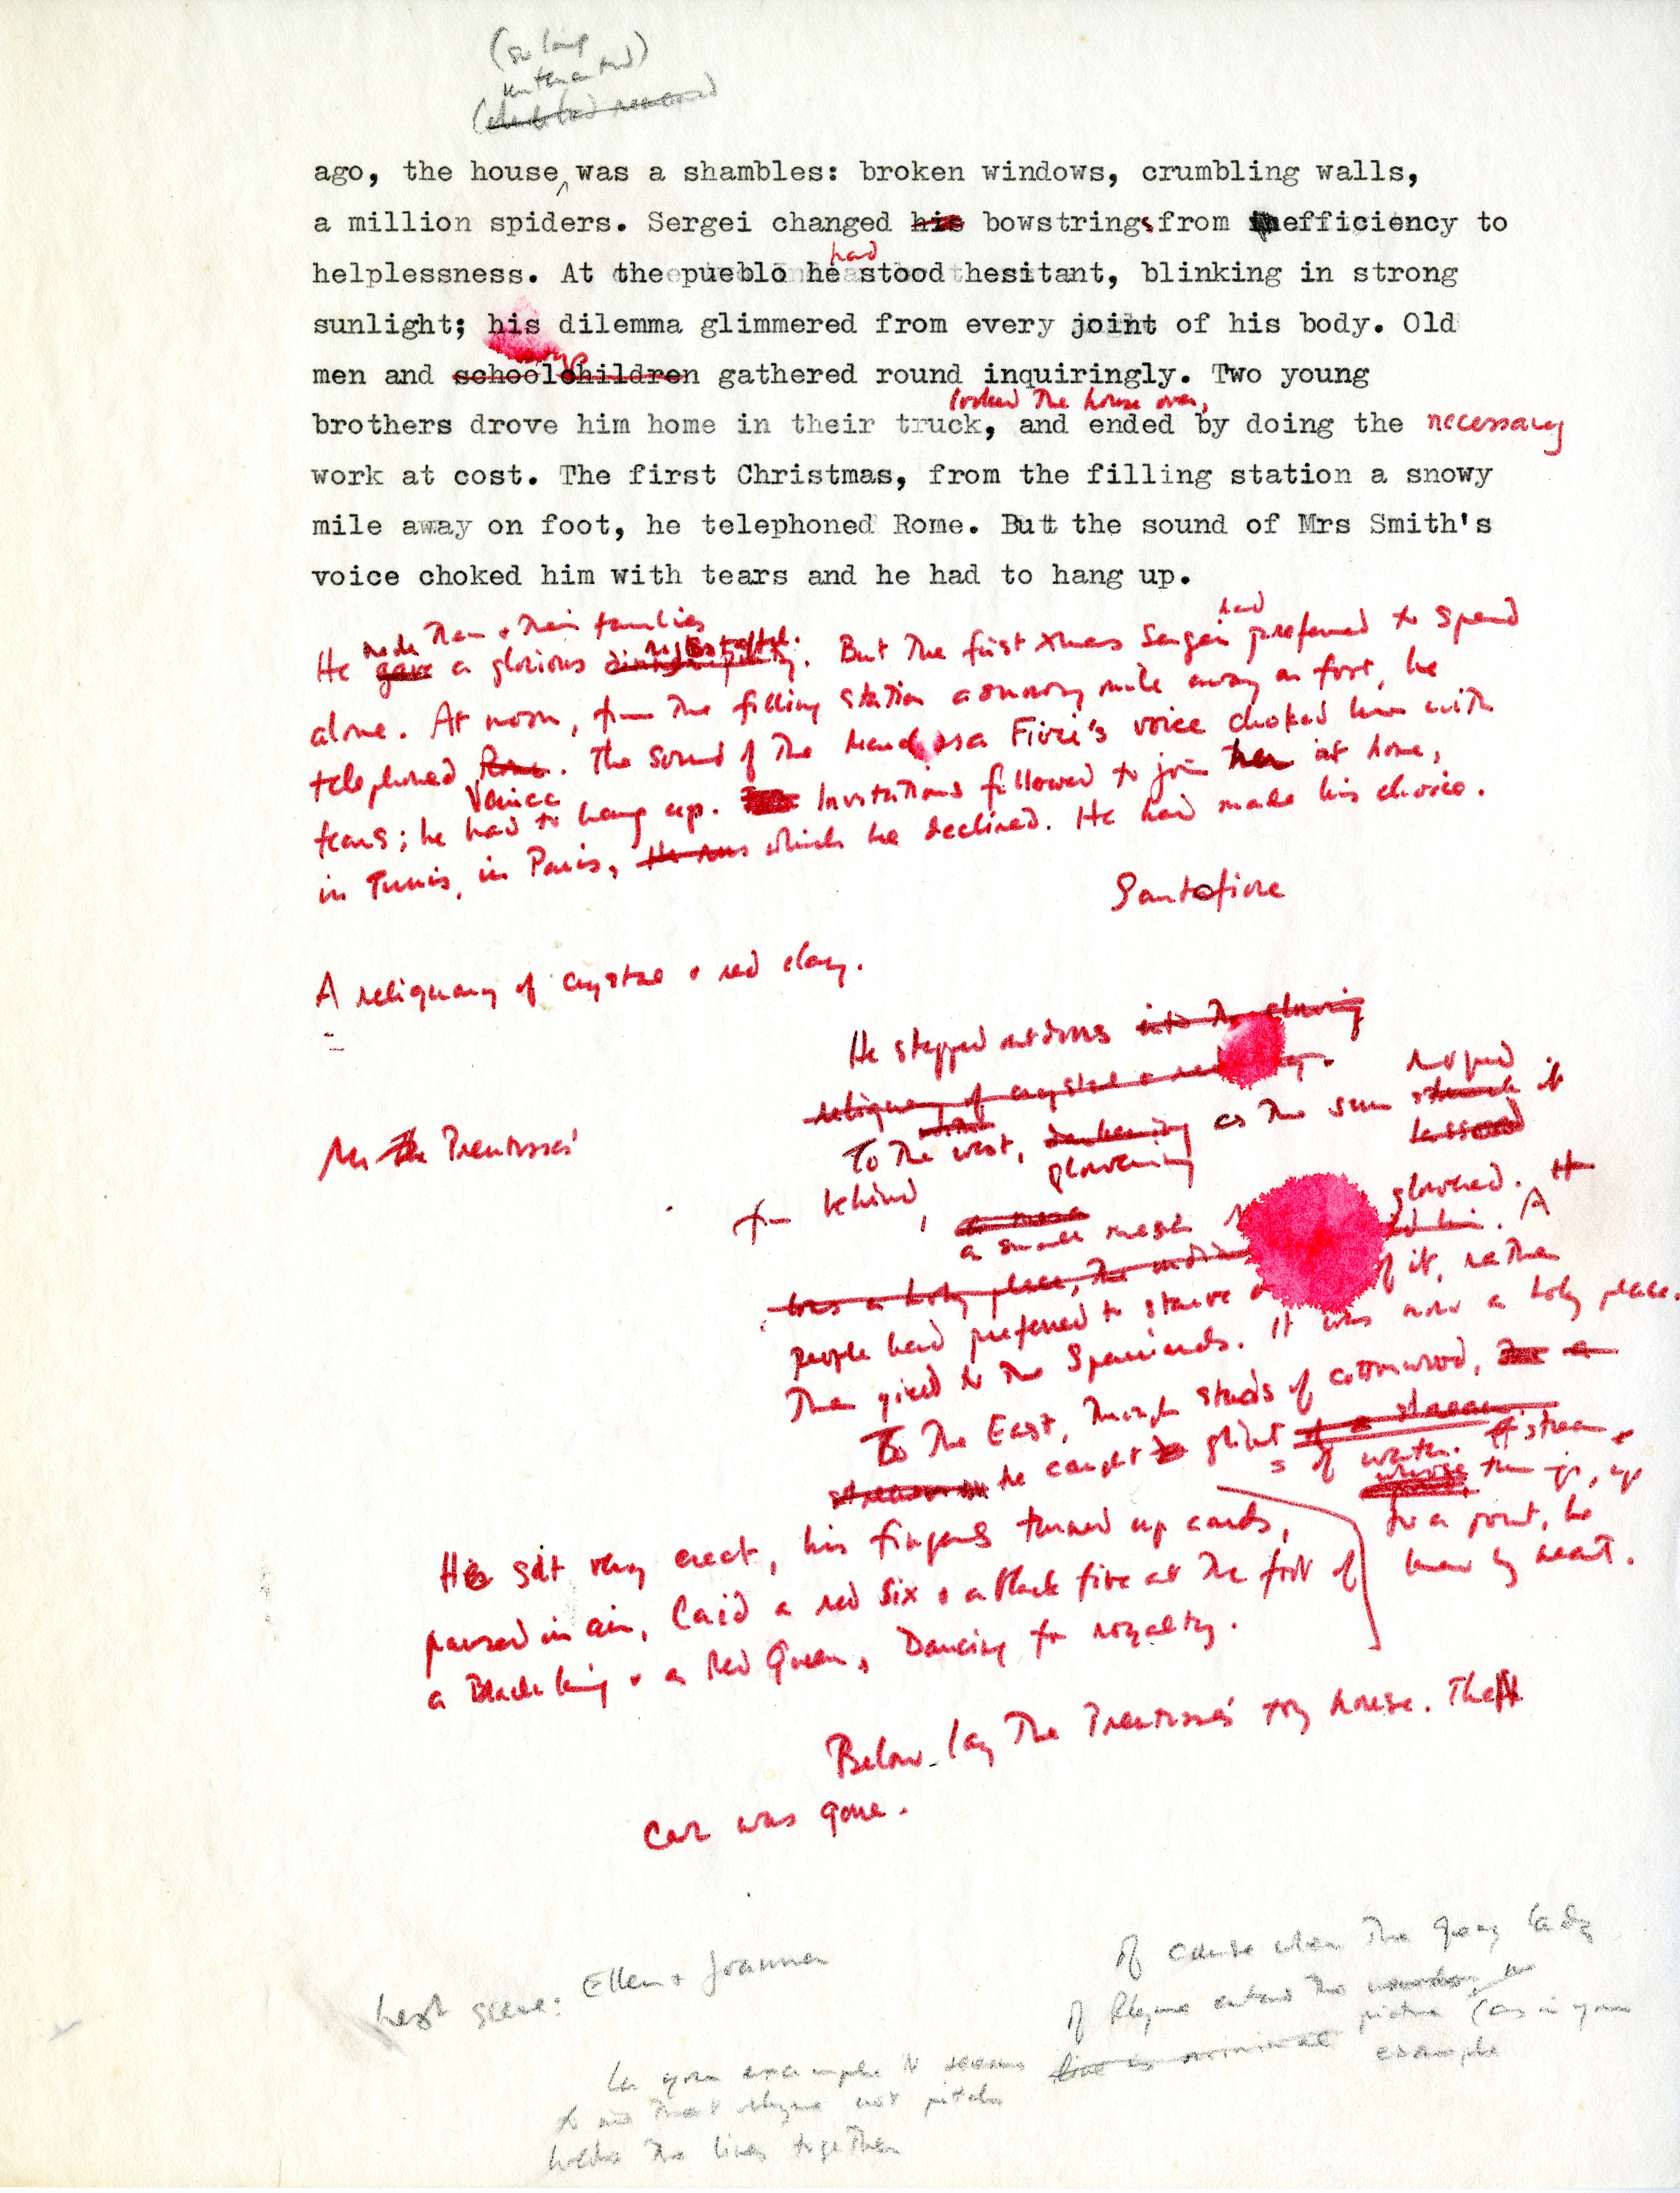 (so long
untenanted)
ago, the house was a shambles: broken windows, crumbling walls,
a million spiders. Sergei changed his bowstrings from inefficiency to
had
helplessness. At the pueblo he stood hesitant, blinking in strong
sunlight; his dilemma glimmered from every joint of his body. Old
boys
men and schoolchildren gathered round inquiringly. Two young
looked the house over,
brothers drove him home in their truck, and ended by doing the necessary
work at cost. The first Christmas, from the filling station a snowy
mile away on foot, he telephoned Rome. But the sound of Mrs Smith's
voice choked him with tears and he had to hang up.
made them + their families had
He gave a glorious. But the first Xmas Sergei preferred to spend
alone. At noon, from the filling station a snowy mile away on foot, he
telephoned Rome. The sound of the Fiore's voice choked him with
Venice
tears; he had to hang up. Invitations followed to join her at home,
in Tunis, in Paris, He was which he declined. He had made his choice.
Santofiore
A reliquary of crystal + red clay.
He stepped outdoors into the evening
reliquary of crystal + red
Mr the Prentisses'
To the west, darkening as the sun struck it
glowering
roped
lassoed
from behind, a small mesa glowered. It
was a holy place, the A
people had preferred to starve of it, rather
than yield to the Spaniards. It was now a holy place.
To the East, through stands of cottonwood, the a
stream he caught glints of a stream
of water. A stream
whose up
to a point, he
knew by heart.
He sat very erect, his fingers turned up cards,
paused in air, laid a red six + a black five at the foot of
a Black king + a Red Queen, Dancing for royalty.
Below lay the Prentisses' toy house. Their
car was gone.
next scene: Ellen + Joanna
Of course when the Grey Lady
of Rhyme enters the
picture (as in your
example
line is minimal
In your example it seems
to me that rhyme not pitch
holds the lines together